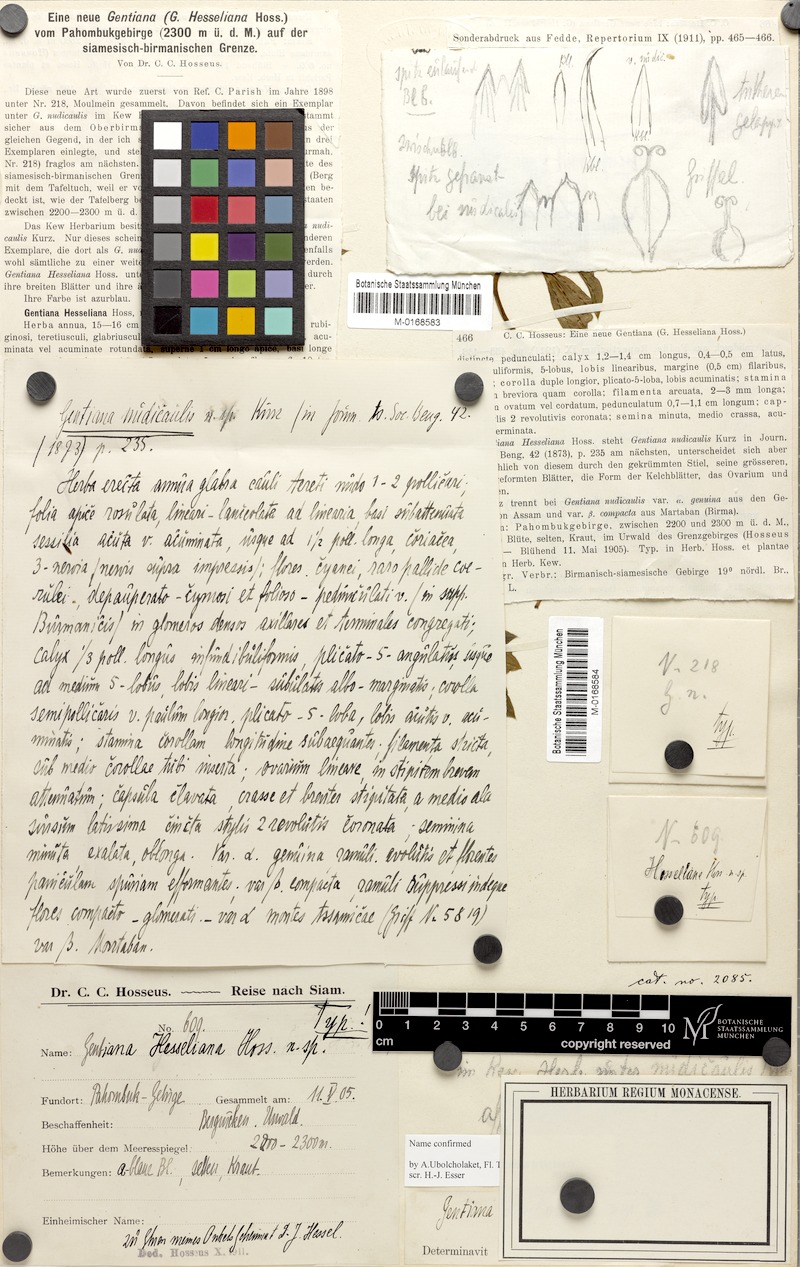 Eine neue Gentiana (G. Hesseliana Hoss.)
vom Pahombukgebirge (2300 m ü. d. M.) auf der
siamesisch-birmanischen Grenze.
Von Dr. C. C. Hosseus.
Diese neue Art wurde zuerst von Ref. C. Parish im Jahre 1898
unter Nr. 218, Moulmein gesammelt. Davon befindet sich ein Exemplar
unter G. nudicaulis im Kew
sicher aus dem Oberbirm
gleichen Gegend, in der ich
Exemplaren einlegte, und
Nr. 218) fraglos am nächsten.
siamesisch-birmanischen Gren
mit dem Tafeltuch, weil er
deckt ist, wie der Tafelberg
zwischen 2200—2300 m ü. d.
Das Kew Herbarium besit
caulis Kurz. Nur dieses schein
Exemplare, die dort als G.
wohl sämtliche zu einer weite
Gentiana Hesseliana Hoss.
ihre breiten Blätter und ihre
Ihre Farbe ist azurblau.
Gentiana Hesseliana Hoss.
Herba annua, 15—16 cm
ginosi, teretiusculi, glabriuscul
minata vel acuminate rotundata, superne 1 cm longo apice, basi longe
Sonderabdruck aus Fedde, Repertorium IX (1911), pp. 465—466.
Griffel.
Botanische Staatssammlung München
M-0168583
466 C. C. Hosseus: Eine neue Gentiana (G. Hesseliana Hoss.)
distincte pedunculati; calyx 1,2—1,4 cm longus, 0,4—0,5 cm latus,
uliformis, 5-lobus, lobis linearibus, margine (0,5 cm) filaribus,
; corolla duple longior, plicato-5-loba, lobis acuminatis; stamina
breviora quam corolla; filamenta arcuata, 2—3 mm longa;
ovatum vel cordatum, pedunculatum 0,7—1,1 cm longum; cap-
lis 2 revolutivis coronata; semina minuta, medio crassa, acu-
erminata.
iana Hesseliana Hoss. steht Gentiana nudicaulis Kurz in Journ.
Beng. 42 (1873), p. 235 am nächsten, unterscheidet sich aber
hlich von diesem durch den gekrümmten Stiel, seine grösseren,
eformten Blätter, die Form der Kelchblätter, das Ovarium und
en.
z trennt bei Gentiana nudicaulis var. α. genuina aus den Ge-
n Assam und var. β. compacta aus Martaban (Birma).
n: Pahombukgebirge, zwischen 2200 und 2300 m ü. d. M.,
Blüte, selten, Kraut, im Urwald des Grenzgebirges (Hosseus
— Blühend 11. Mai 1905). Typ. in Herb. Hoss. et plantae
n Herb. Kew.
gr. Verbr.: Birmanisch-siamesische Gebirge 19° nördl. Br.,
L.
Gentiana nudicaulis n. sp. Kurz (in Journ. As. Soc. Beng. 42.
(1873) p. 235.
Herba erecta annua glabra cauli tereti nudo 1-2 pollicari;
folia apice rosulata, lineari-lanceolata ad linearia, basi subattenuata
sessilia acuta v. acuminata, usque ad 1/2 poll. longa, coriacea,
3-nervia (nervis supra impressis); flores cyanei, raro pallide coe-
rulei, depauperato-cymosi et folioso-pedunculati v. (in supp.
Burmanicis) in glomeros densos axillares et terminales congregati;
calyx 1/3 poll. longus infundibuliformis, plicato-5-angulatus, usque
ad medium 5-lobus, lobis lineari-subulatis albo-marginatis; corolla
semipollicaris v. paulum longior, plicato-5-loba, lobis acutis v. acu-
minatis; stamina corollam longitudine subaequantes; filamenta stricta,
sub medio corollae tubi inserta; ovarium lineare, in stipitem brevem
attenuatum; capsula clavata, crasse et breviter stipitata, a medio ala
sursum latissima cincta stylis 2 revolutis coronata; semina
minuta, exalata, oblonga. Var. α. genuina ramuli evolutis et florentes
paniculam spuriam efformantes. var β. compacta, ramuli suppressi indeque
flores compacto-glomerati. — var α montes Assamicae (Griff No 5819)
var β. Martaban.
Botanische Staatssammlung München
M-0168584
N. 218
G. n.
typ.
N. 609
Hesseliana Hoss. n. sp.
typ.
cat. no. 2085.
Dr. C. C. Hosseus. Reise nach Siam.
Typ.!
No. 609.
Name: Gentiana Hesseliana Hoss. n. sp.
Fundort: Pahombuk-Gebirge Gesammelt am: 11. V. 05.
Beschaffenheit: Bergrücken. Urwald.
Höhe über dem Meeresspiegel: 2200-2300m.
Bemerkungen: a-blaue Bl., selten, Kraut.
Einheimischer Name:
zu Ehren meines Onkels Geheimrat L. J. Hessel.
Ded. Hosseus X.
0 1 2 3 4 5 6 7 8 9 10
cm copyright reserved
BOTANISCHE
STAATSSAMMLUNG
MÜNCHEN
in Kew. Herb. unter nudicaulis
HERBARIUM REGIUM MONACENSE.
Name confirmed
by A.Ubolcholaket, Fl. T
scr. H.-J. Esser
Gentiana
Determinavit